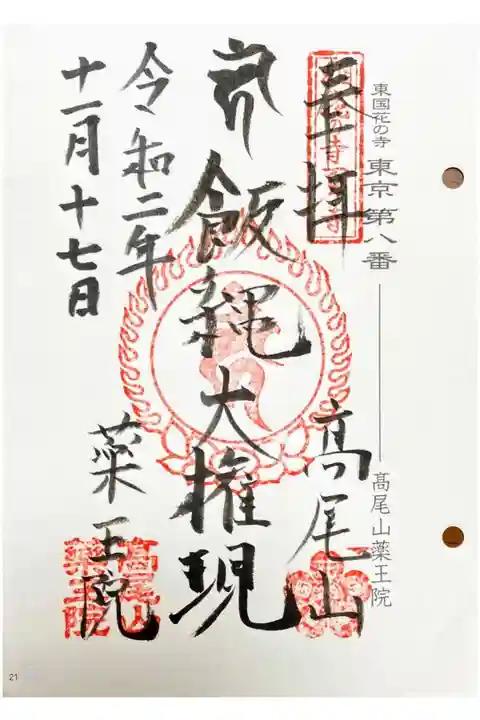 東国花の寺 東京 第八番 高尾山薬王院
奉拝
高尾山
飯縄大権現
令和二年
十一月十七日
薬王院
高尾山
薬王院
21